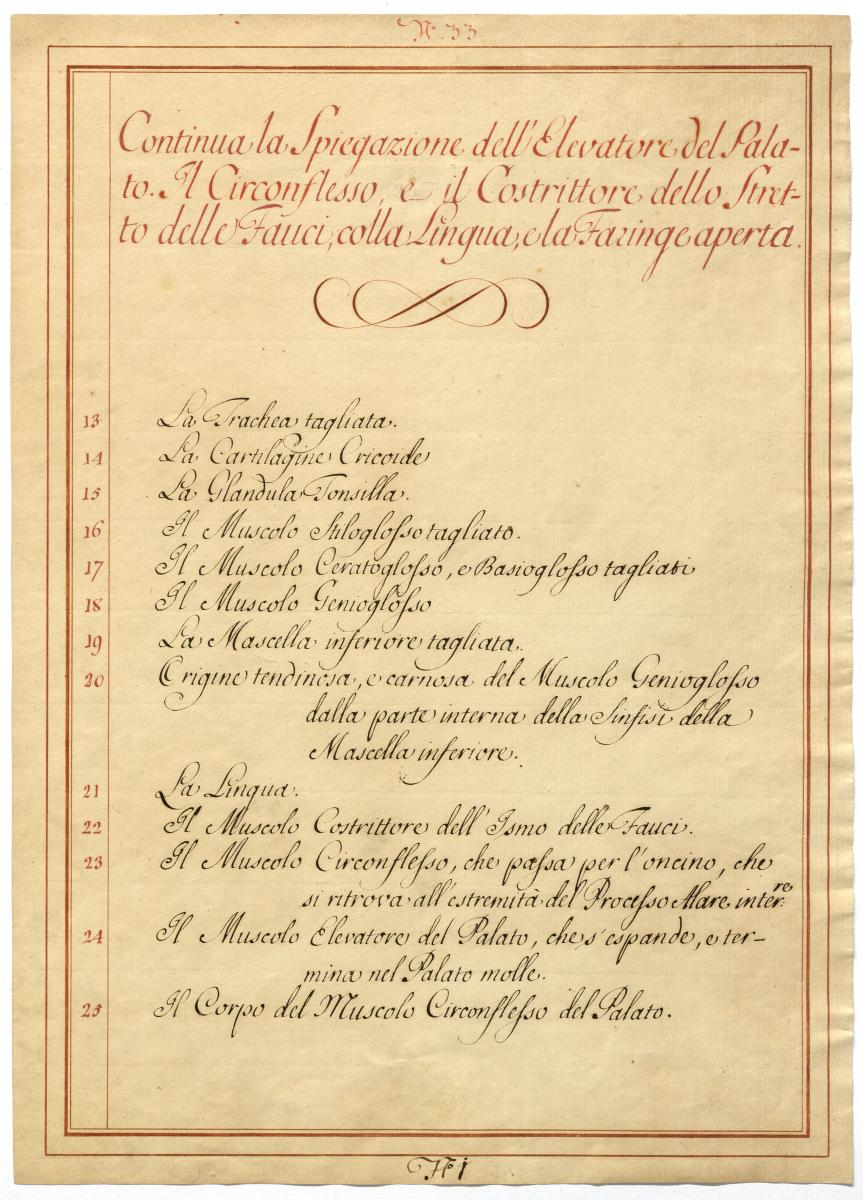 N.º 33
Continua la Spiegazione dell'Elevatore del Pala-
to. Il Circonflesso, e il Costrittore dello Stret-
to delle Fauci, colla Lingua, e la Faringe aperta.
13 La Trachea tagliata.
14 La Cartilagine Cricoide
15 La Glandula Tonsilla.
16 Il Muscolo Stiloglosso tagliato.
17 Il Muscolo Ceratoglosso, e Basioglosso tagliati
18 Il Muscolo Genioglosso
19 La Mascella inferiore tagliata.
20 Origine tendinosa, e carnosa del Muscolo Genioglosso
dalla parte interna della Sinfisi della
Mascella inferiore.
21 La Lingua.
22 Il Muscolo Costrittore dell'Ismo delle Fauci.
23 Il Muscolo Circonflesso, che passa per l'oncino, che
si ritrova all'estremità del Processo Alare inter.re
24 Il Muscolo Elevatore del Palato, che s'espande, e ter-
mina nel Palato molle.
25 Il Corpo del Muscolo Circonflesso del Palato.